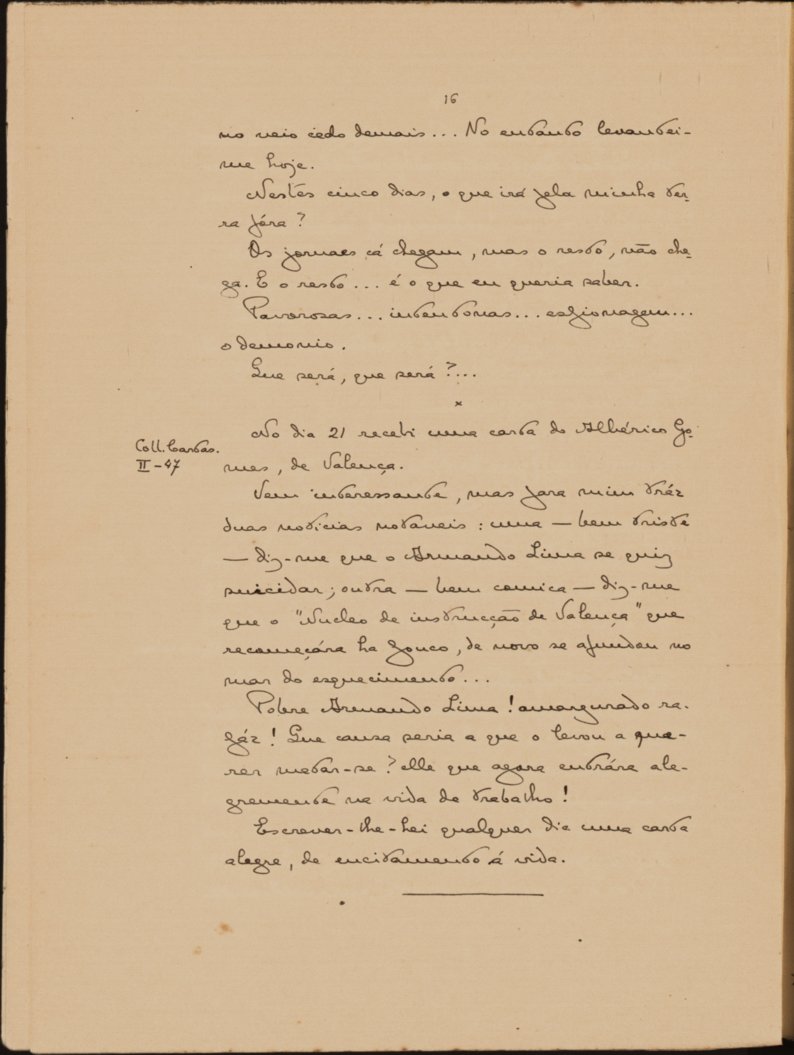 16
no veio cedo demais... No entanto levantei-
me hoje.
Nestes cinco dias, o que irá pela minha ter-
ra fóra?
Os jornaes cá chegam, mas o resto, não che-
ga. E o resto... é o que eu queria saber.
Pavorosas... intentonas... espionagem...
o demonio.
Que será, que será?...
×
No dia 21 recebi uma carta do Albérico Go-
Coll. Cartas.
II-47
mes, de Valença.
Vem interessante, mas para mim tráz
duas noticias notaveis: uma — bem triste
— diz-me que o Armando Lima se quiz
suicidar; outra — bem comica — diz-me
que o "Nucleo de instrucção de Valença" que
recomeçára ha pouco, de novo se afundou no
mar do esquecimento...
Pobre Armando Lima! amargurado ra-
páz! Que causa seria a que o levou a que-
rer matar-se? elle que agora entrára ale-
gremente na vida do trabalho!
Escrever-lhe-hei qualquer dia uma carta
alegre, de incitamento á vida.